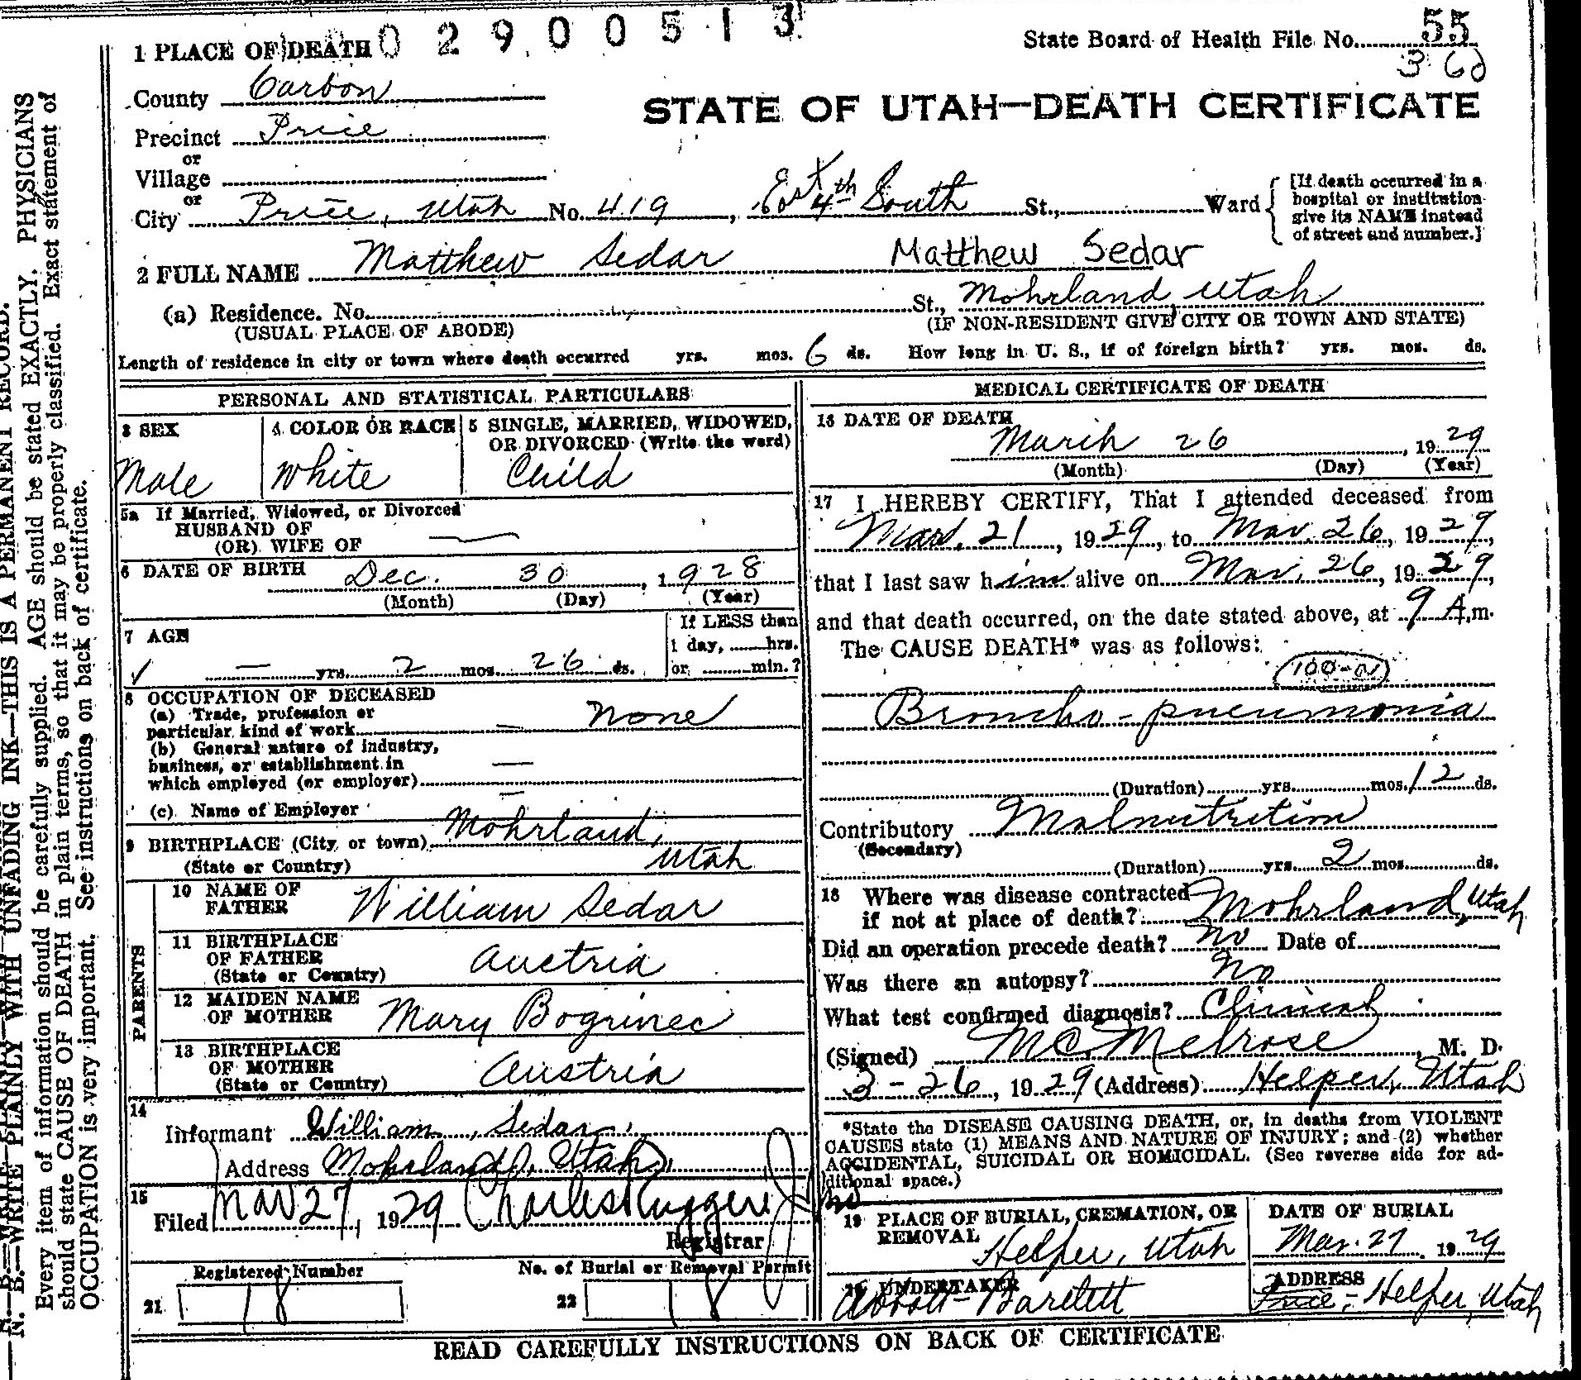 02900513
State Board of Health File No. 55
36d
1 PLACE OF DEATH
County Carbon
STATE OF UTAH—DEATH CERTIFICATE
Precinct Price
or
Village
or
City Price, Utah No. 419, East 4th South St., Ward
[If death occurred in a
hospital or institution
give its NAME instead
of street and number.]
2 FULL NAME Matthew Sedar Matthew Sedar
(a) Residence. No. St., Mohrland, Utah
(USUAL PLACE OF ABODE) (IF NON-RESIDENT GIVE CITY OR TOWN AND STATE)
Length of residence in city or town where death occurred yrs. mos. 6 ds. How long in U. S., if of foreign birth? yrs. mos. ds.
PERSONAL AND STATISTICAL PARTICULARS
3 SEX
Male
4 COLOR OR RACE
White
5 SINGLE, MARRIED, WIDOWED,
OR DIVORCED (Write the word)
Child
5a If Married, Widowed, or Divorced
HUSBAND OF
(OR) WIFE OF —
6 DATE OF BIRTH Dec. 30, 1928
(Month) (Day) (Year)
7 AGE
✓ — yrs. 2 mos. 26 ds.
If LESS than
1 day, hrs.
or min.?
8 OCCUPATION OF DECEASED
(a) Trade, profession or
particular kind of work — none
(b) General nature of industry,
business, or establishment in
which employed (or employer) —
(c) Name of Employer —
9 BIRTHPLACE (City or town) Mohrland,
(State or Country) Utah
PARENTS
10 NAME OF
FATHER William Sedar
11 BIRTHPLACE
OF FATHER
(State or Country) Austria
12 MAIDEN NAME
OF MOTHER Mary Bogrinec
13 BIRTHPLACE
OF MOTHER
(State or Country) Austria
14
Informant William Sedar
Address Mohrland, Utah
15
Filed Mar 27, 1929 Charles Ruggeri
Registrar
Registered Number
21 18
No. of Burial or Removal Permit
22 18
MEDICAL CERTIFICATE OF DEATH
16 DATE OF DEATH
March 26, 1929
(Month) (Day) (Year)
17 I HEREBY CERTIFY, That I attended deceased from
Mar. 21, 1929, to Mar. 26, 1929,
that I last saw him alive on Mar. 26, 1929,
and that death occurred, on the date stated above, at 9 A.m.
The CAUSE DEATH* was as follows:
100-a
Broncho-pneumonia
(Duration) yrs. mos. 12 ds.
Contributory Malnutrition
(Secondary)
(Duration) yrs. 2 mos. ds.
18 Where was disease contracted
if not at place of death? Mohrland, Utah
Did an operation precede death? no Date of
Was there an autopsy? no
What test confirmed diagnosis? Clinical
(Signed) MC Melrose, M. D.
3-26, 1929 (Address) Helper, Utah
*State the DISEASE CAUSING DEATH, or, in deaths from VIOLENT
CAUSES state (1) MEANS AND NATURE OF INJURY; and (2) whether
ACCIDENTAL, SUICIDAL OR HOMICIDAL. (See reverse side for ad-
ditional space.)
19 PLACE OF BURIAL, CREMATION, OR
REMOVAL
Helper, Utah
DATE OF BURIAL
Mar. 27, 1929
20 UNDERTAKER
Bartlett
ADDRESS
Price - Helper, Utah
READ CAREFULLY INSTRUCTIONS ON BACK OF CERTIFICATE
N. B.—WRITE PLAINLY WITH UNFADING INK—THIS IS A PERMANENT RECORD.
Every item of information should be carefully supplied. AGE should be stated EXACTLY. PHYSICIANS
should state CAUSE OF DEATH in plain terms, so that it may be properly classified. Exact statement of
OCCUPATION is very important. See instructions on back of certificate.